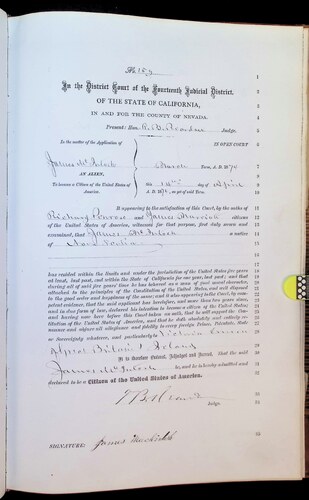 No 157 1
In the District Court of the Fourteenth Judicial District, 2
OF THE STATE OF CALIFORNIA, 3
IN AND FOR THE COUNTY OF NEVADA. 4
Present: Hon. Judge. 5
In the matter of the Application of IN OPEN COURT 6
James Mc March Term, A. D. 1876 7
AN ALIEN, 8
To become a Citizen of the United States of this day of April 9
America. A. D. 1876, as yet of said Term. 10
It appearing to the satisfaction of this Court, by the oaths of 11
Richard and James citizens 12
of the United States, witnesses for that purpose, first duly sworn and 13
examined, that James a native 14
of Nova Scotia
has resided within the limits and under the jurisdiction of the United States five years
at least, last past, and within the State of California for one year, last past; and that
during all of said five years' time he has behaved as a man of good moral character,
attached to the principles of the Constitution of the United States, and well disposed
to the good order and happiness of the same; and it also appearing to the Court, by com-
petent evidence, that the said applicant has heretofore, and more than two years since,
and in due form of law, declared his intention to become a citizen of the United States;
and having now here before this Court taken an oath, that he will support the Con-
stitution of the United States of America, and that he doth absolutely and entirely re-
nounce and abjure all allegiance and fidelity to every foreign Prince, Potentate, State
or Sovereignty whatever, and particularly to Victoria Queen
of Great Britain & Ireland
It is therefore Ordered, Adjudged and Decreed, that the said
James be, and he is hereby admitted and
declared to be a Citizen of the United States of America.
Judge.
SIGNATURE: James